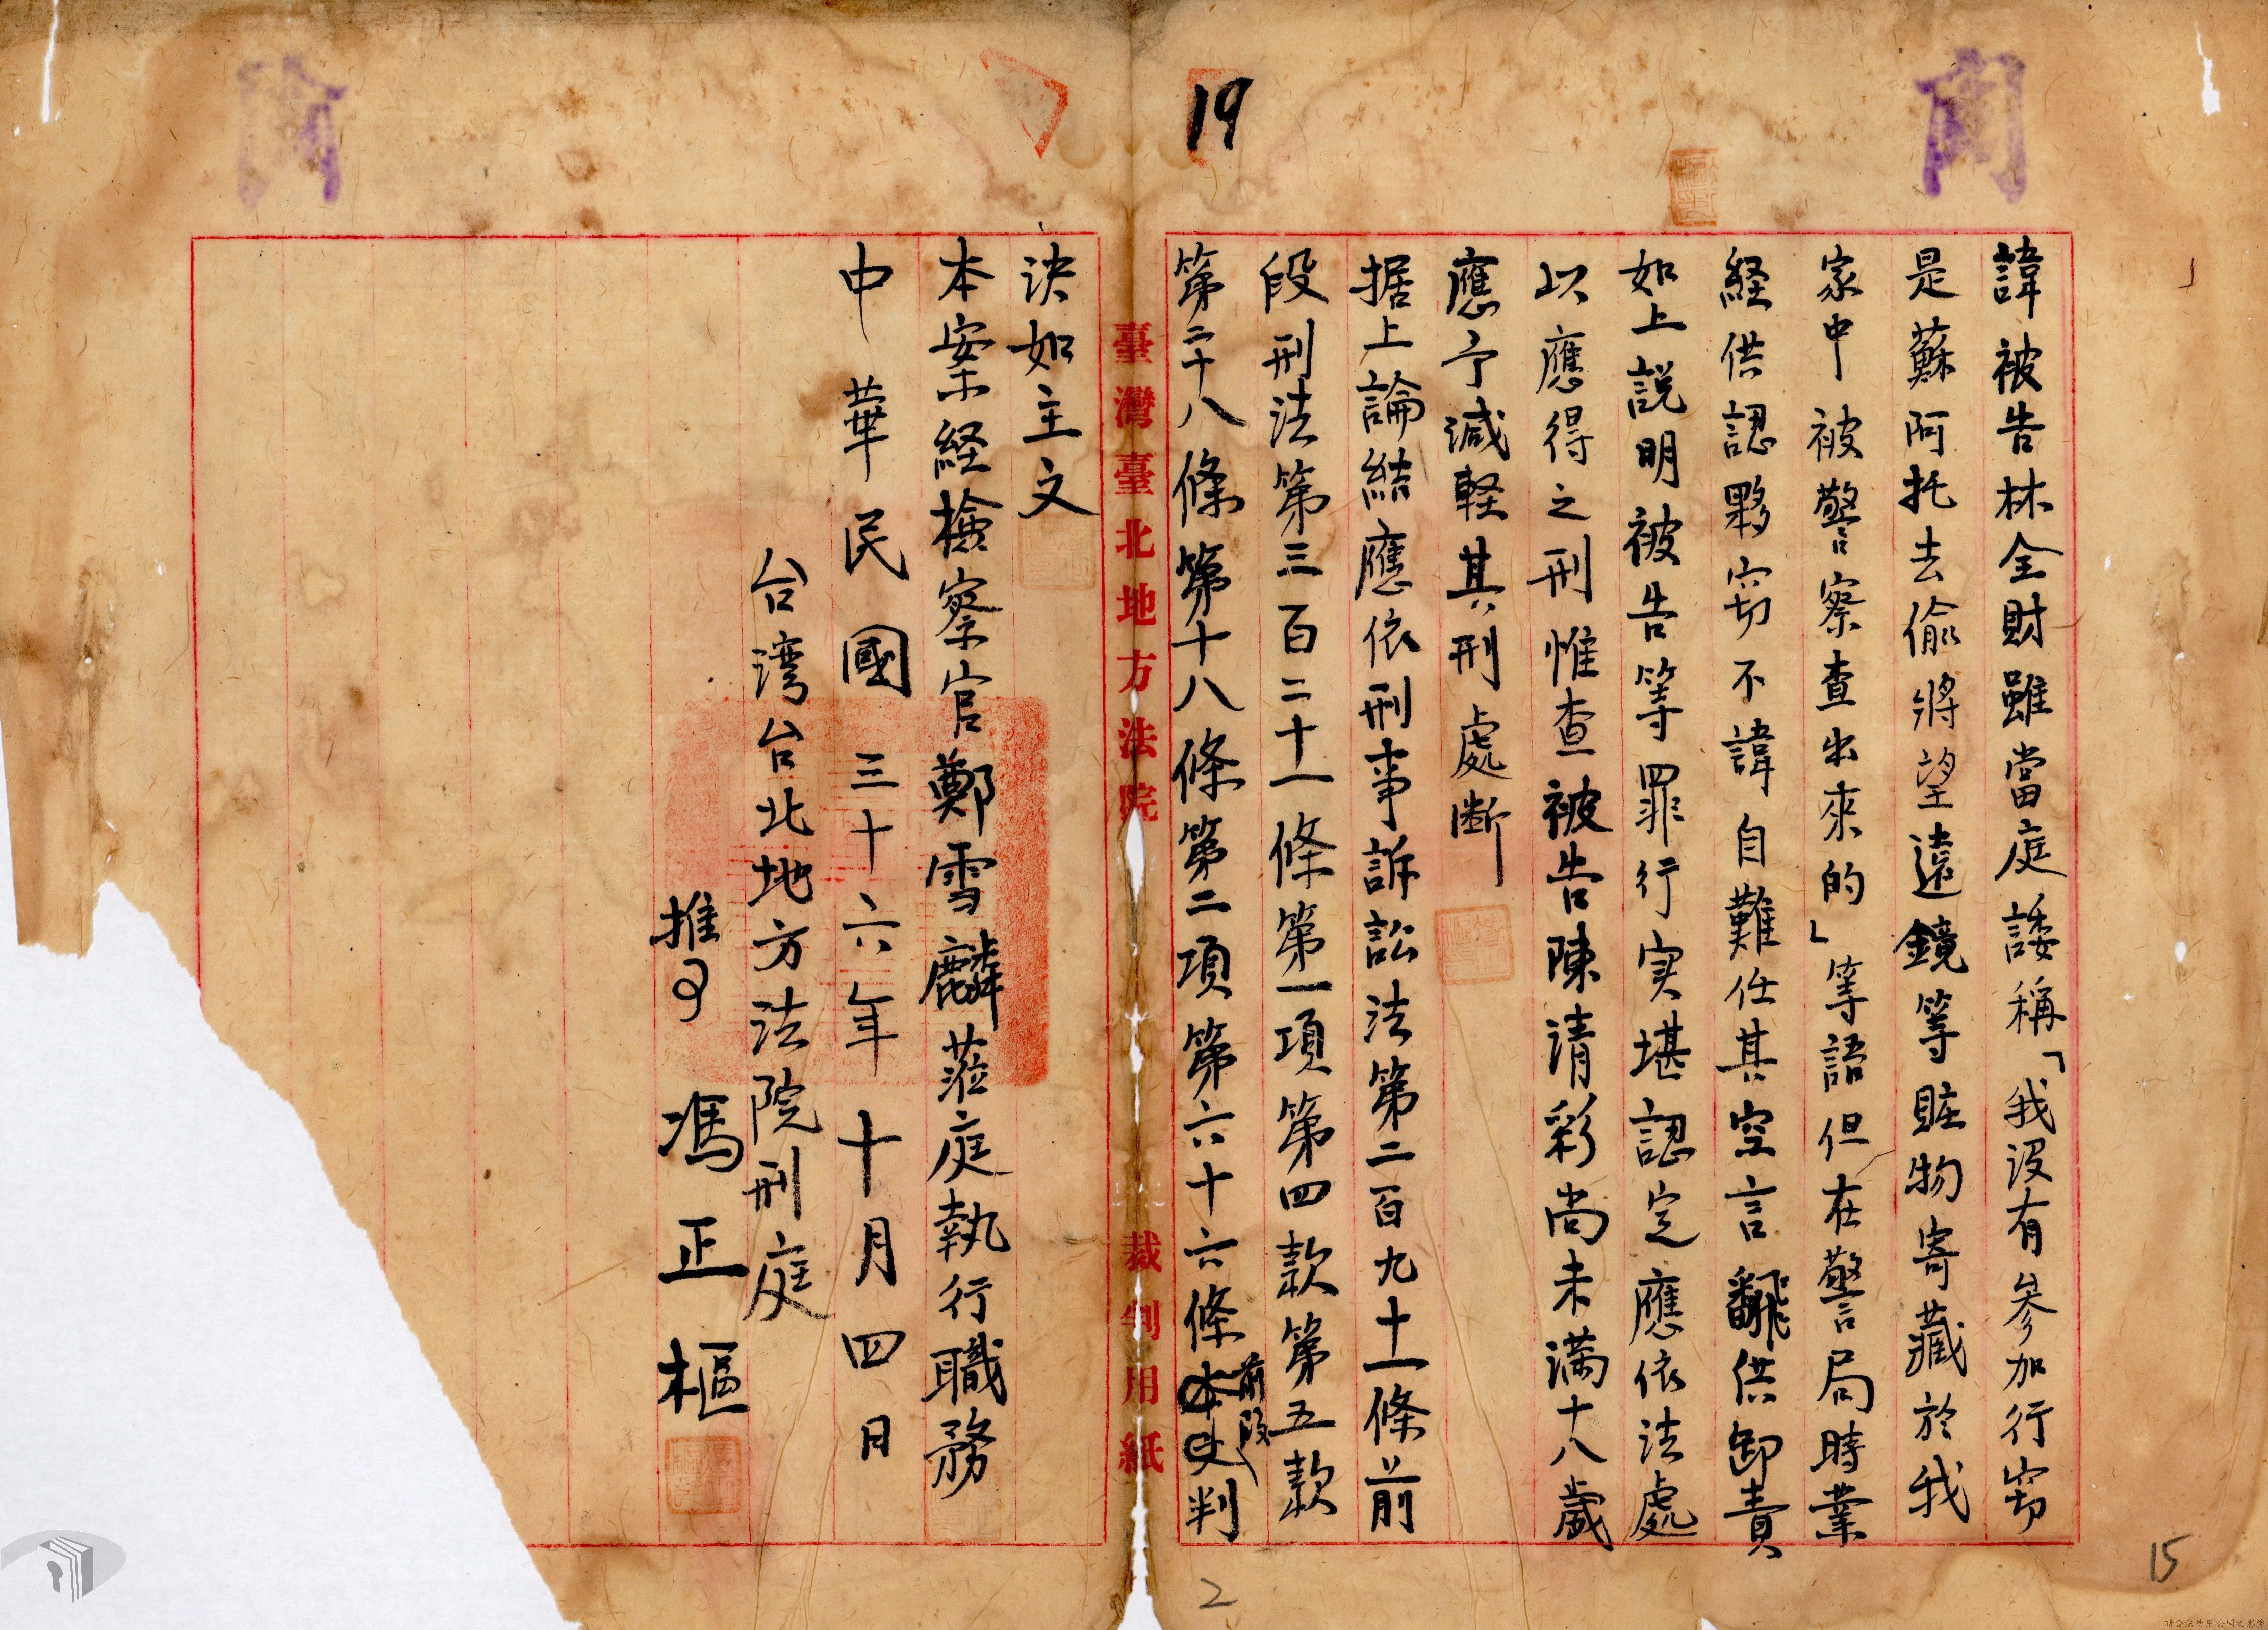 19
諱被告林全財雖當庭諉稱「我没有參加行窃
是蘇阿托去偷將望遠鏡等賍物寄藏於我
家中被警察查出來的」等語但在警局時業
経供認夥窃不諱自難任其空言翻供卸責
如上説明被告等罪行实堪認定應依法處
以應得之刑惟查被告陳清彩尚未満十八歲
應予減軽其刑處断
据上論結應依刑事訴訟法第二百九十一條前
段刑法第三百二十一條第一項第四款第五款
第二十八條第十八條第二項第六十六條前段判
臺灣臺北地方法院 裁判用紙
決如主文
本案経檢察官鄭雪麟蒞庭執行職務
中華民國三十六年十月四日
台湾台北地方法院刑庭
推事 馮正樞
2
15
請合法使用公開之影像